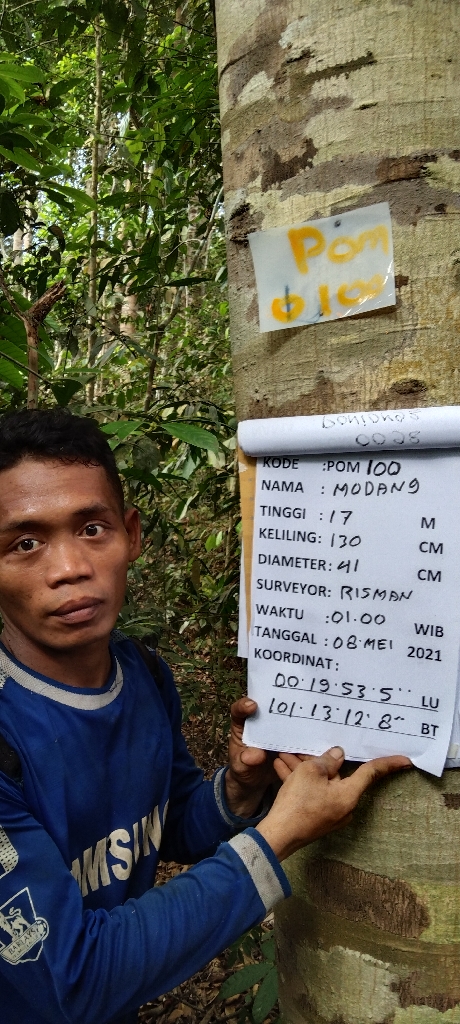 Pom
0100
KODE :POM 100
NAMA : MODANG
TINGGI : 17 M
KELILING: 130 CM
DIAMETER: 41 CM
SURVEYOR: RISMAN
WAKTU :01.00 WIB
TANGGAL : 08·MEI 2021
KOORDINAT:
00·19·53·5'' LU
101·13·12·8'' BT
SAMSUN